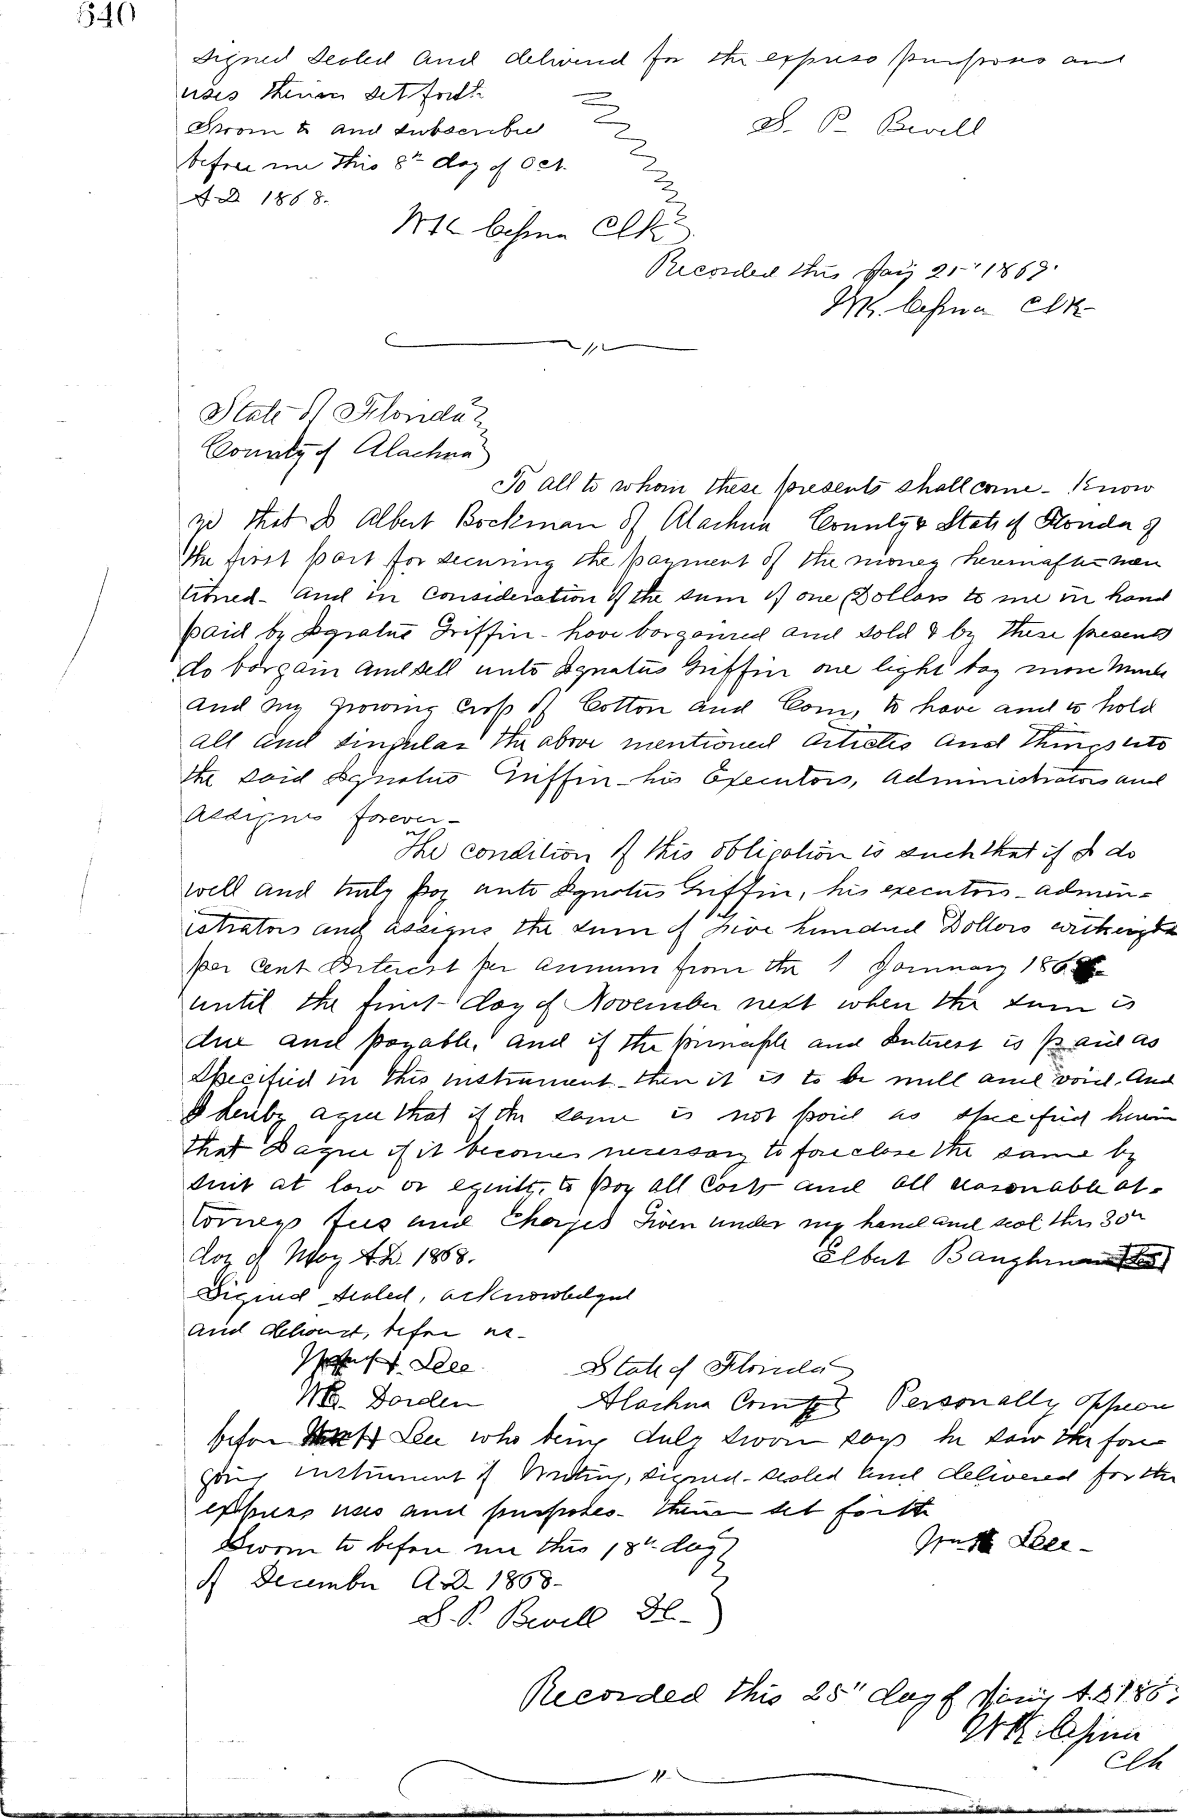 640
signed sealed and delivered for the express purposes and
uses therein set forth
Sworn to and subscribed
S. P. Bevill
before me this 8th day of Oct.
A D 1868.
WK Cessna Clk
Recorded this Jany 25" 1869.
WK. Cessna Clk
State of Florida
County of Alachua
To all to whom these presents shall come - Know
ye that I Albert Bockman of Alachua County & State of Florida of
the first part for securing the payment of the money hereinafter men
tioned - and in consideration of the sum of one Dollars to me in hand
paid by Ignatus Griffin - have bargained and sold & by these presents
do bargain and sell unto Ignatus Griffin one light bay mare
and my growing crop of Cotton and Corn, to have and to hold
all and singular the above mentioned articles and things unto
the said Ignatus Griffin - his Executors, administrators and
assigns forever -
The condition of this obligation is such that if I do
well and truly pay unto Ignatus Griffin, his executors - admin=
istrators and assigns the sum of five hundred Dollars with eight
per cent Interest per annum from the 1 January 186
until the first day of November next when the sum is
due and payable, and if the principle and Interest is paid as
specified in this instrument - then it is to be null and void. And
I hereby agree that if the same is not paid as specified herein
that I agree if it becomes necessary to foreclose the same by
suit at law or equity, to pay all costs and all reasonable at-
torneys fees and charges Given under my hand and seal this 30th
day of May A.D. 1868.
Elbert Baughman
Signed sealed, acknowledged
and delivered, before us -
H. Lee
State of Florida
Dorden
Alachua County Personally appear
before H Lee who being duly sworn says he saw the fore
going instrument of Writing, signed - sealed and delivered for the
express uses and purposes - therein set forth
Sworn to before me this 18th day
Lee -
of December A.D. 1868 -
S. P. Bevill DC -
Recorded this 25" day of Jany A.D 186
WK. Cessna
Clk